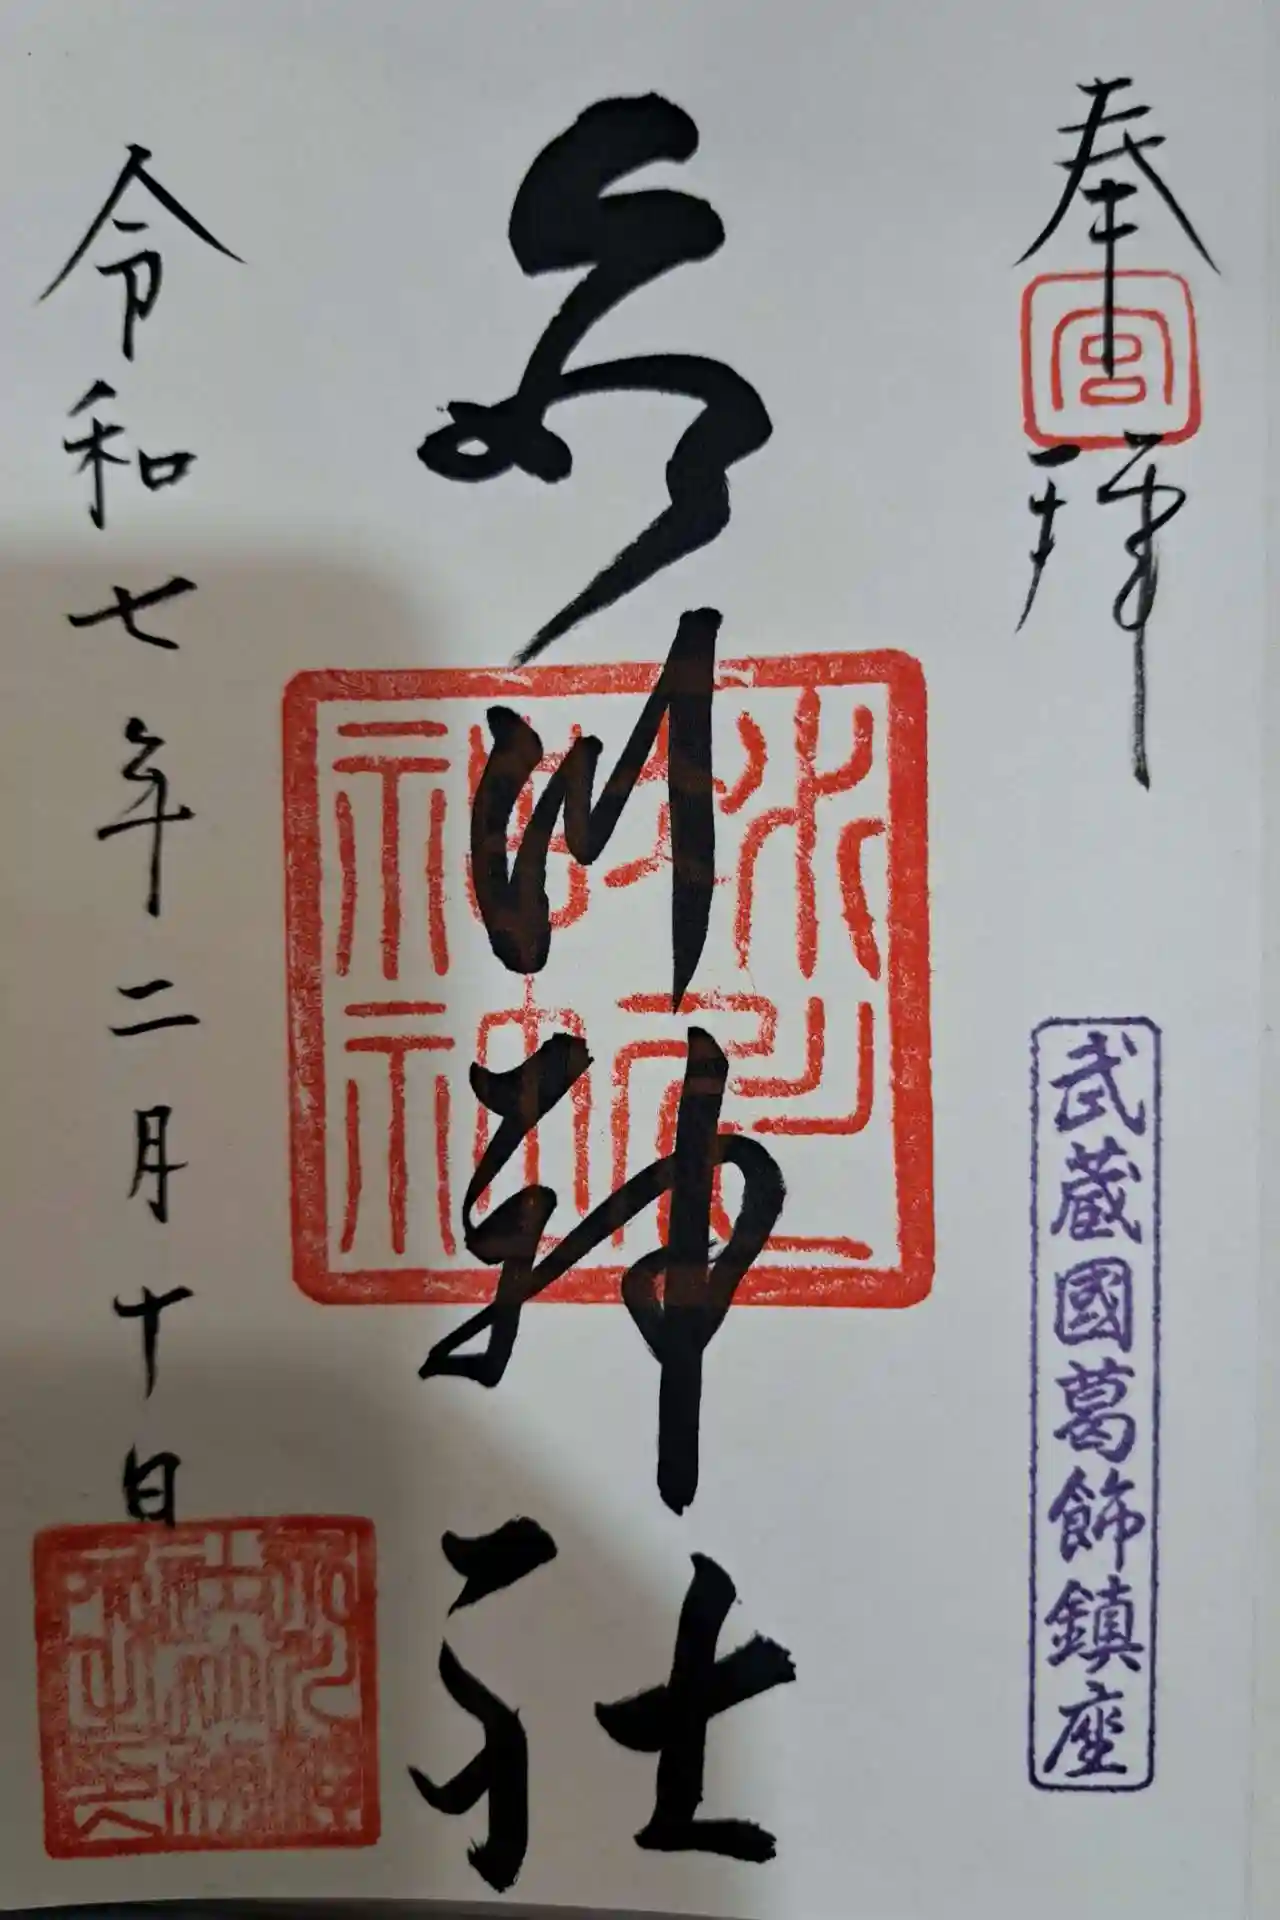 奉拝
宮
武蔵國葛飾鎮座
氷川神社
氷川神社
令和七年二月十日